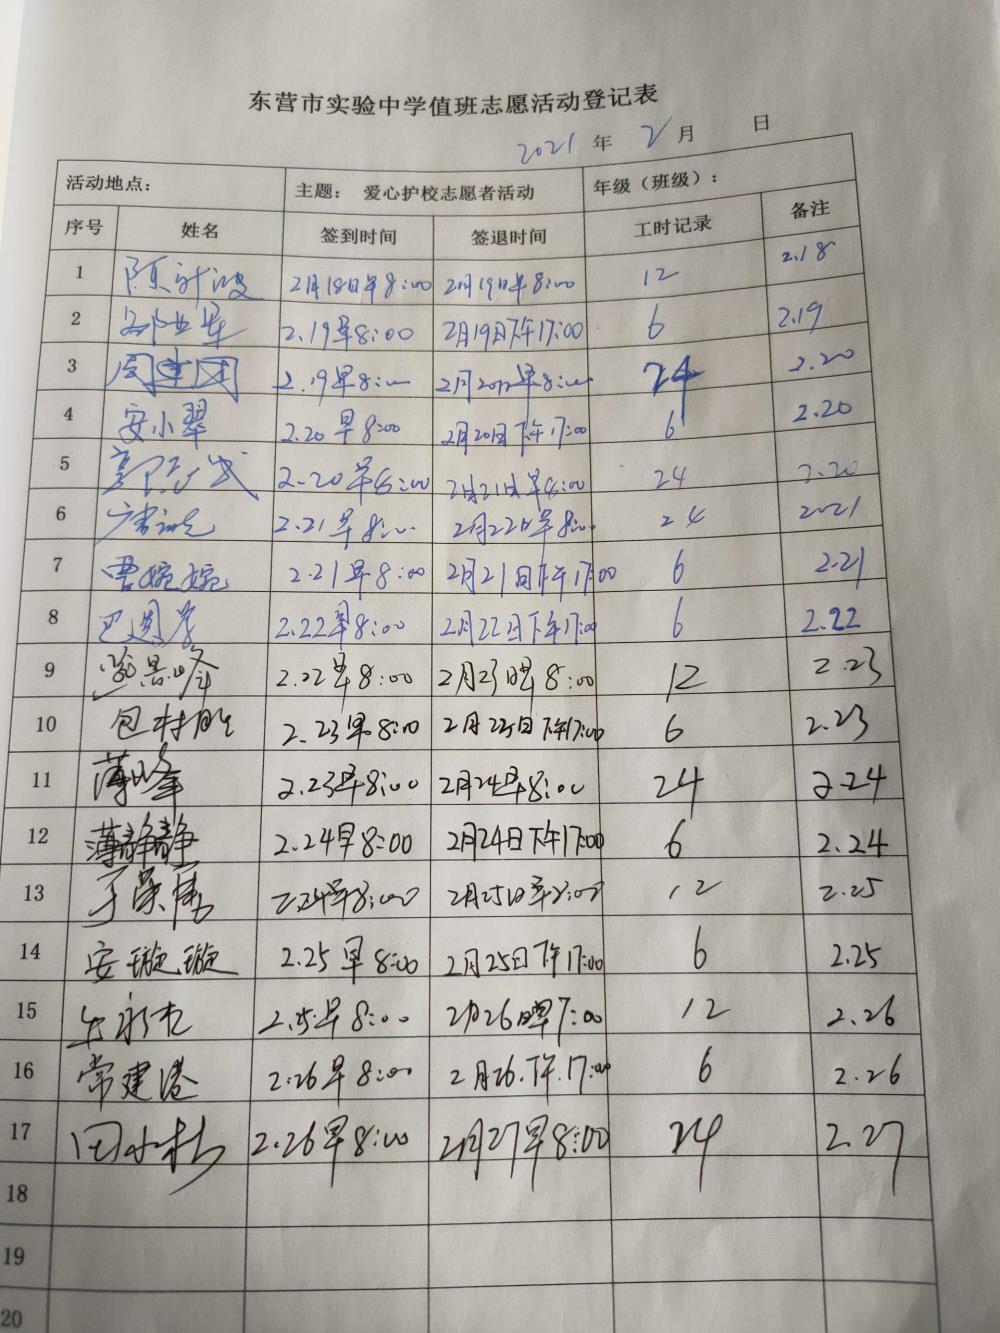 东营市实验中学值班志愿活动登记表
2021 年 2 月 日
活动地点： 主题： 爱心护校志愿者活动 年级（班级）：
序号 姓名 签到时间 签退时间 工时记录 备注
1 2月18日早8:00 2月19日早8:00 12 2.18
2 2.19早8:00 2月19日下午17:00 6 2.19
3 2.19早8:00 早8:00 24 2.20
4 安小翠 2.20早8:00 2月20日下午17:00 6 2.20
5 2.20早8:00 2月21日早8:00 24 2.20
6 2.21早8:00 2月22日早8:00 24 2.21
7 曹婉婉 2.21早8:00 2月21日下午17:00 6 2.21
8 2.22早8:00 2月22日下午17:00 6 2.22
9 2.22早8:00 2月23日早8:00 12 2.23
10 包村胜 2.23早8:00 下午17:00 6 2.23
11 薄峰 2.23早8:00 2月24早8:00 24 2.24
12 薄静静 2.24早8:00 2月24日下午17:00 6 2.24
13 2.24早8:00 2月25日早8:00 12 2.25
14 安璇璇 2.25早8:00 2月25日下午17:00 6 2.25
15 早8:00 2月26日 7:00 12 2.26
16 常建港 2.26早8:00 2月26.下午.17:00 6 2.26
17 田小杉 2.26早8:00 2月27早8:00 24 2.27
18
19
20